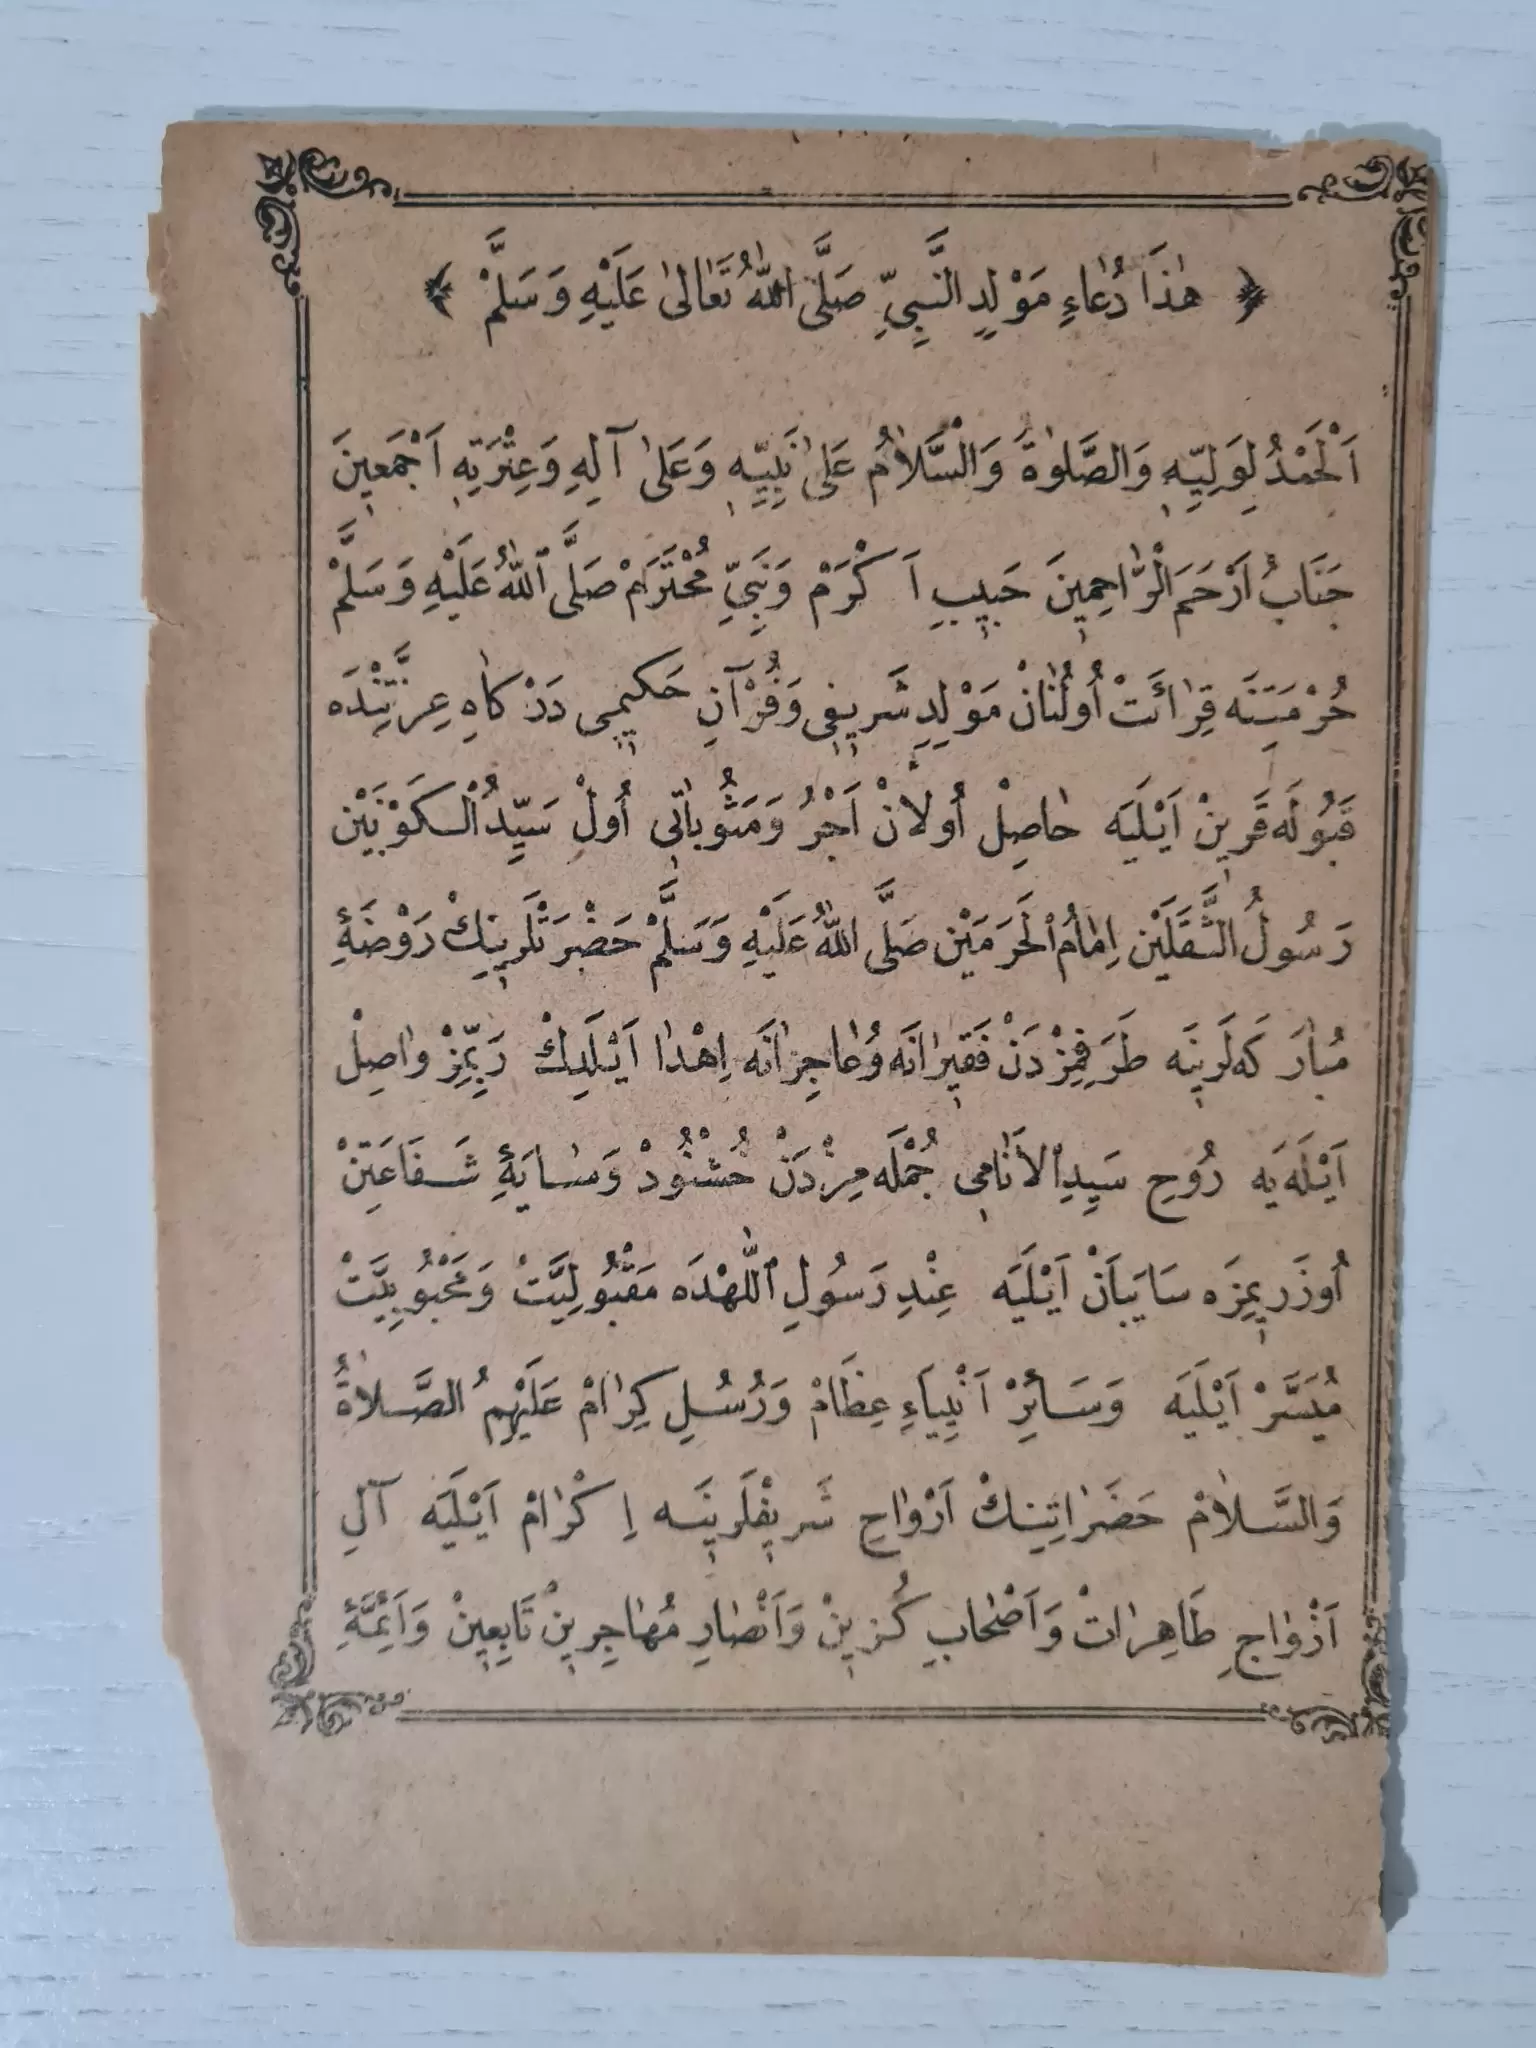 ﴿ هٰذَا دُعَاءِ مَوْلِدِ النَّبِيِّ صَلَّى اللّٰهُ تَعَالٰى عَلَيْهِ وَسَلَّمْ ﴾
اَلْحَمْدُ لِوَلِيِّهٖ وَالصَّلٰوةُ وَالسَّلَامُ عَلٰى نَبِيِّهٖ وَعَلٰى آلِهِ وَعِتْرَتِهٖ اَجْمَعٖينَ
جَنَابُ اَرْحَمَ الرَّاحِمٖينَ حَبٖيبِ اَكْرَمْ وَنَبِيِّ مُحْتَرَمْ صَلَّى اللّٰهُ عَلَيْهِ وَسَلَّمْ
حُرْمَتِنَه قِرٰائَتْ اُولُنَانْ مَوْلِدِ شَرٖيفٖى وَقُرْآنِ حَكٖيمٖى دَرْكَاهِ عِزَّتِنْدَه
قَبُولَه قَرٖينْ اَيْلَيَه حَاصِلْ اُولَانْ اَجْرُ وَمَثُوبَاتٖى اُولْ سَيِّدُ الْكَوْنَيْنِ
رَسُولُ الثَّقَلَيْنِ اِمَامُ الْحَرَمَيْنِ صَلَّى اللّٰهُ عَلَيْهِ وَسَلَّمْ حَضْرَتْلَرٖينِكْ رَوْضَۀِ
مُبَارَكَه لَرٖينَه طَرَفِمِزْدَنْ فَقٖيرَانَه وُعَاجِزَانَه اِهْدَا اَيْلَدِكْ رَبِّمِزْ وَاصِلْ
اَيْلَه يَه رُوحِ سَيِّدِ الْاَنَامٖى جُمْلَه مِزْدَنْ خُشْنُودْ وَسَايَۀِ شَفَاعَتِنْ
اُوزَرٖيمِزَه سَايَبَانْ اَيْلَيَه عِنْدِ رَسُولِ اللّٰهْدَه مَقْبُولِيَّتْ وَمَحْبُوبِيَّتْ
مُيَسَّرْ اَيْلَيَه وَسَائِرْ اَنْبِيَاءِ عِظَامْ وَرُسُلِ كِرَامْ عَلَيْهِمُ الصَّلَاةُ
وَالسَّلَامْ حَضَرَاتِينِكْ اَرْوَاحِ شَرٖيفْلَرٖينَه اِكْرَامْ اَيْلَيَه آلِ
اَزْوَاجِ طَاهِرَاتْ وَاَصْحَابِ كُزٖينْ وَاَنْصَارِ مُهَاجِرٖينْ تَابِعٖينْ وَاَئِمَّۀِ